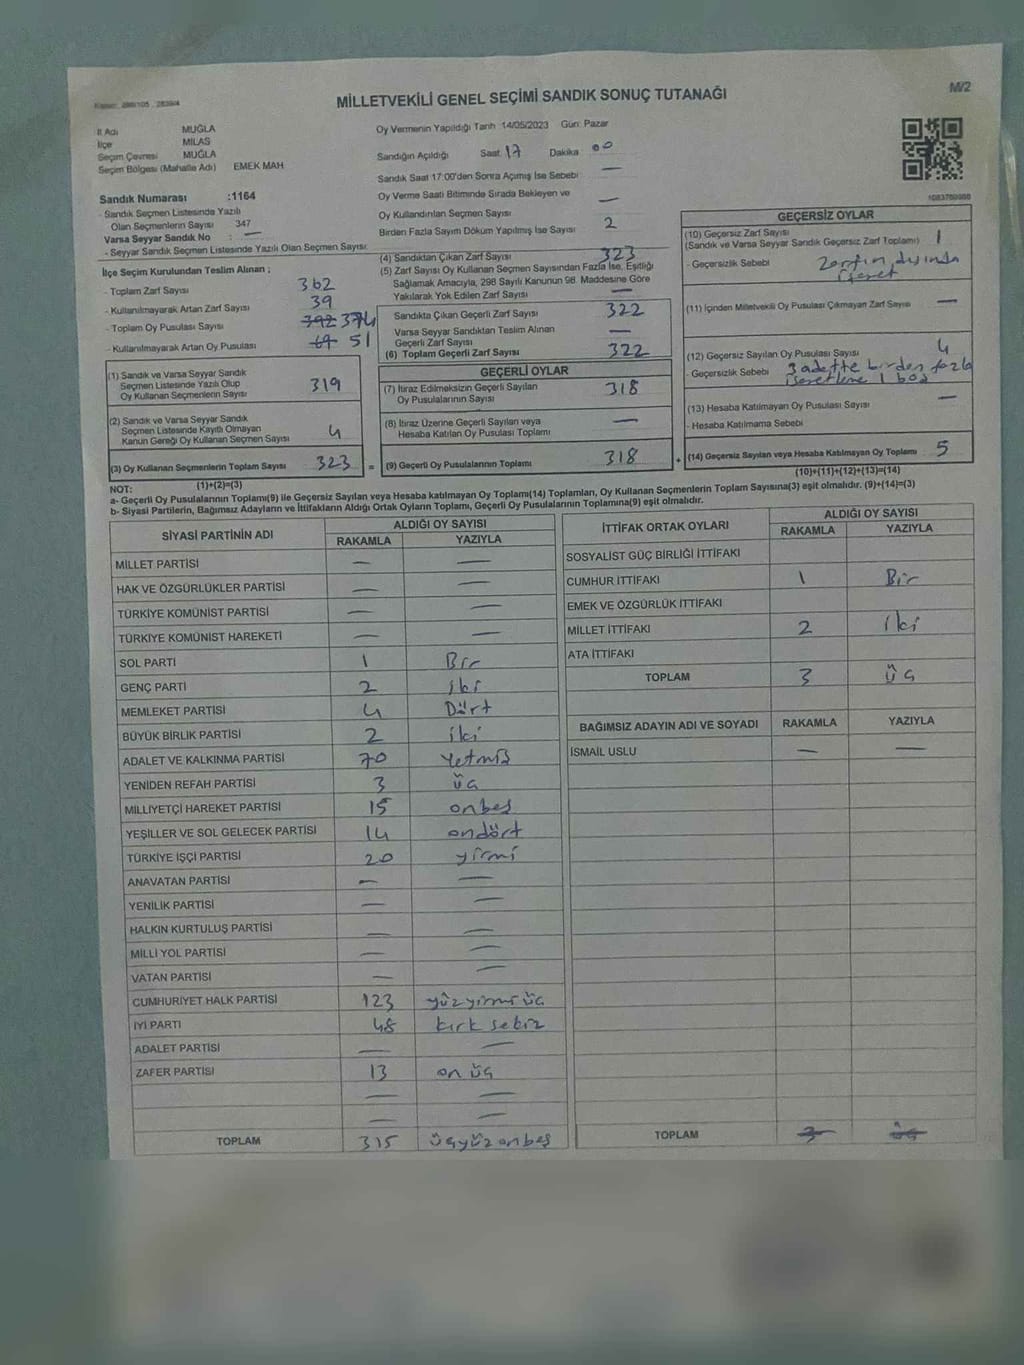 MİLLETVEKİLİ GENEL SEÇİMİ SANDIK SONUÇ TUTANAĞI
M/2
İl Adı MUĞLA
İlçe MİLAS
Seçim Çevresi MUĞLA
Seçim Bölgesi (Mahalle Adı) EMEK MAH
Sandık Numarası :1164
- Sandık Seçmen Listesinde Yazılı
Olan Seçmenlerin Sayısı 347
Varsa Seyyar Sandık No : —
- Seyyar Sandık Seçmen Listesinde Yazılı Olan Seçmen Sayısı:
Oy Vermenin Yapıldığı Tarih 14/05/2023 Gün: Pazar
Sandığın Açıldığı Saat 17 Dakika 00
Sandık Saat 17:00'den Sonra Açımış İse Sebebi —
Oy Verme Saati Bitiminde Sırada Bekleyen ve
Oy Kullandırılan Seçmen Sayısı —
Birden Fazla Sayım Döküm Yapılmış İse Sayısı 2
İlçe Seçim Kurulundan Teslim Alınan ;
- Toplam Zarf Sayısı 362
- Kullanılmayarak Artan Zarf Sayısı 39
- Toplam Oy Pusulası Sayısı 392 374
- Kullanılmayarak Artan Oy Pusulası 69 51
(1) Sandık ve Varsa Seyyar Sandık
Seçmen Listesinde Yazılı Olup
Oy Kullanan Seçmenlerin Sayısı 319
(2) Sandık ve Varsa Seyyar Sandık
Seçmen Listesinde Kayıtlı Olmayan
Kanun Gereği Oy Kullanan Seçmen Sayısı 4
(3) Oy Kullanan Seçmenlerin Toplam Sayısı 323
(1)+(2)=(3)
(4) Sandıktan Çıkan Zarf Sayısı 323
(5) Zarf Sayısı Oy Kullanan Seçmen Sayısından Fazla İse, Eşitliği
Sağlamak Amacıyla, 298 Sayılı Kanunun 98. Maddesine Göre
Yakılarak Yok Edilen Zarf Sayısı —
Sandıkta Çıkan Geçerli Zarf Sayısı 322
Varsa Seyyar Sandıktan Teslim Alınan
Geçerli Zarf Sayısı —
(6) Toplam Geçerli Zarf Sayısı 322
GEÇERLİ OYLAR
(7) İtiraz Edilmeksizin Geçerli Sayılan
Oy Pusulalarının Sayısı 318
(8) İtiraz Üzerine Geçerli Sayılan veya
Hesaba Katılan Oy Pusulası Toplamı —
= (9) Geçerli Oy Pusulalarının Toplamı 318
GEÇERSİZ OYLAR
(10) Geçersiz Zarf Sayısı
(Sandık ve Varsa Seyyar Sandık Geçersiz Zarf Toplamı) 1
- Geçersizlik Sebebi Zarfın dışında
işaret
(11) İçinden Milletvekili Oy Pusulası Çıkmayan Zarf Sayısı —
(12) Geçersiz Sayılan Oy Pusulası Sayısı 4
- Geçersizlik Sebebi 3 adette birden fazla
işaretleme 1 boş
(13) Hesaba Katılmayan Oy Pusulası Sayısı —
- Hesaba Katılmama Sebebi
+ (14) Geçersiz Sayılan veya Hesaba Katılmayan Oy Toplamı 5
(10)+(11)+(12)+(13)=(14)
NOT:
a- Geçerli Oy Pusulalarının Toplamı(9) ile Geçersiz Sayılan veya Hesaba katılmayan Oy Toplamı(14) Toplamları, Oy Kullanan Seçmenlerin Toplam Sayısına(3) eşit olmalıdır. (9)+(14)=(3)
b- Siyasi Partilerin, Bağımsız Adayların ve İttifakların Aldığı Ortak Oyların Toplamı, Geçerli Oy Pusulalarının Toplamına(9) eşit olmalıdır.
SİYASİ PARTİNİN ADI ALDIĞI OY SAYISI
RAKAMLA YAZIYLA
MİLLET PARTİSİ — —
HAK VE ÖZGÜRLÜKLER PARTİSİ — —
TÜRKİYE KOMÜNİST PARTİSİ — —
TÜRKİYE KOMÜNİST HAREKETİ — —
SOL PARTİ 1 Bir
GENÇ PARTİ 2 iki
MEMLEKET PARTİSİ 4 Dört
BÜYÜK BİRLİK PARTİSİ 2 iki
ADALET VE KALKINMA PARTİSİ 70 Yetmiş
YENİDEN REFAH PARTİSİ 3 üç
MİLLİYETÇİ HAREKET PARTİSİ 15 onbeş
YEŞİLLER VE SOL GELECEK PARTİSİ 14 ondört
TÜRKİYE İŞÇİ PARTİSİ 20 yirmi
ANAVATAN PARTİSİ — —
YENİLİK PARTİSİ — —
HALKIN KURTULUŞ PARTİSİ — —
MİLLİ YOL PARTİSİ — —
VATAN PARTİSİ — —
CUMHURİYET HALK PARTİSİ 123 yüzyirmi üç
İYİ PARTİ 48 kırk sekiz
ADALET PARTİSİ — —
ZAFER PARTİSİ 13 on üç
— —
— —
TOPLAM 315 üçyüz onbeş
İTTİFAK ORTAK OYLARI ALDIĞI OY SAYISI
RAKAMLA YAZIYLA
SOSYALİST GÜÇ BİRLİĞİ İTTİFAKI
CUMHUR İTTİFAKI 1 Bir
EMEK VE ÖZGÜRLÜK İTTİFAKI
MİLLET İTTİFAKI 2 iki
ATA İTTİFAKI
TOPLAM 3 üç
BAĞIMSIZ ADAYIN ADI VE SOYADI RAKAMLA YAZIYLA
İSMAİL USLU — —
TOPLAM 3 üç